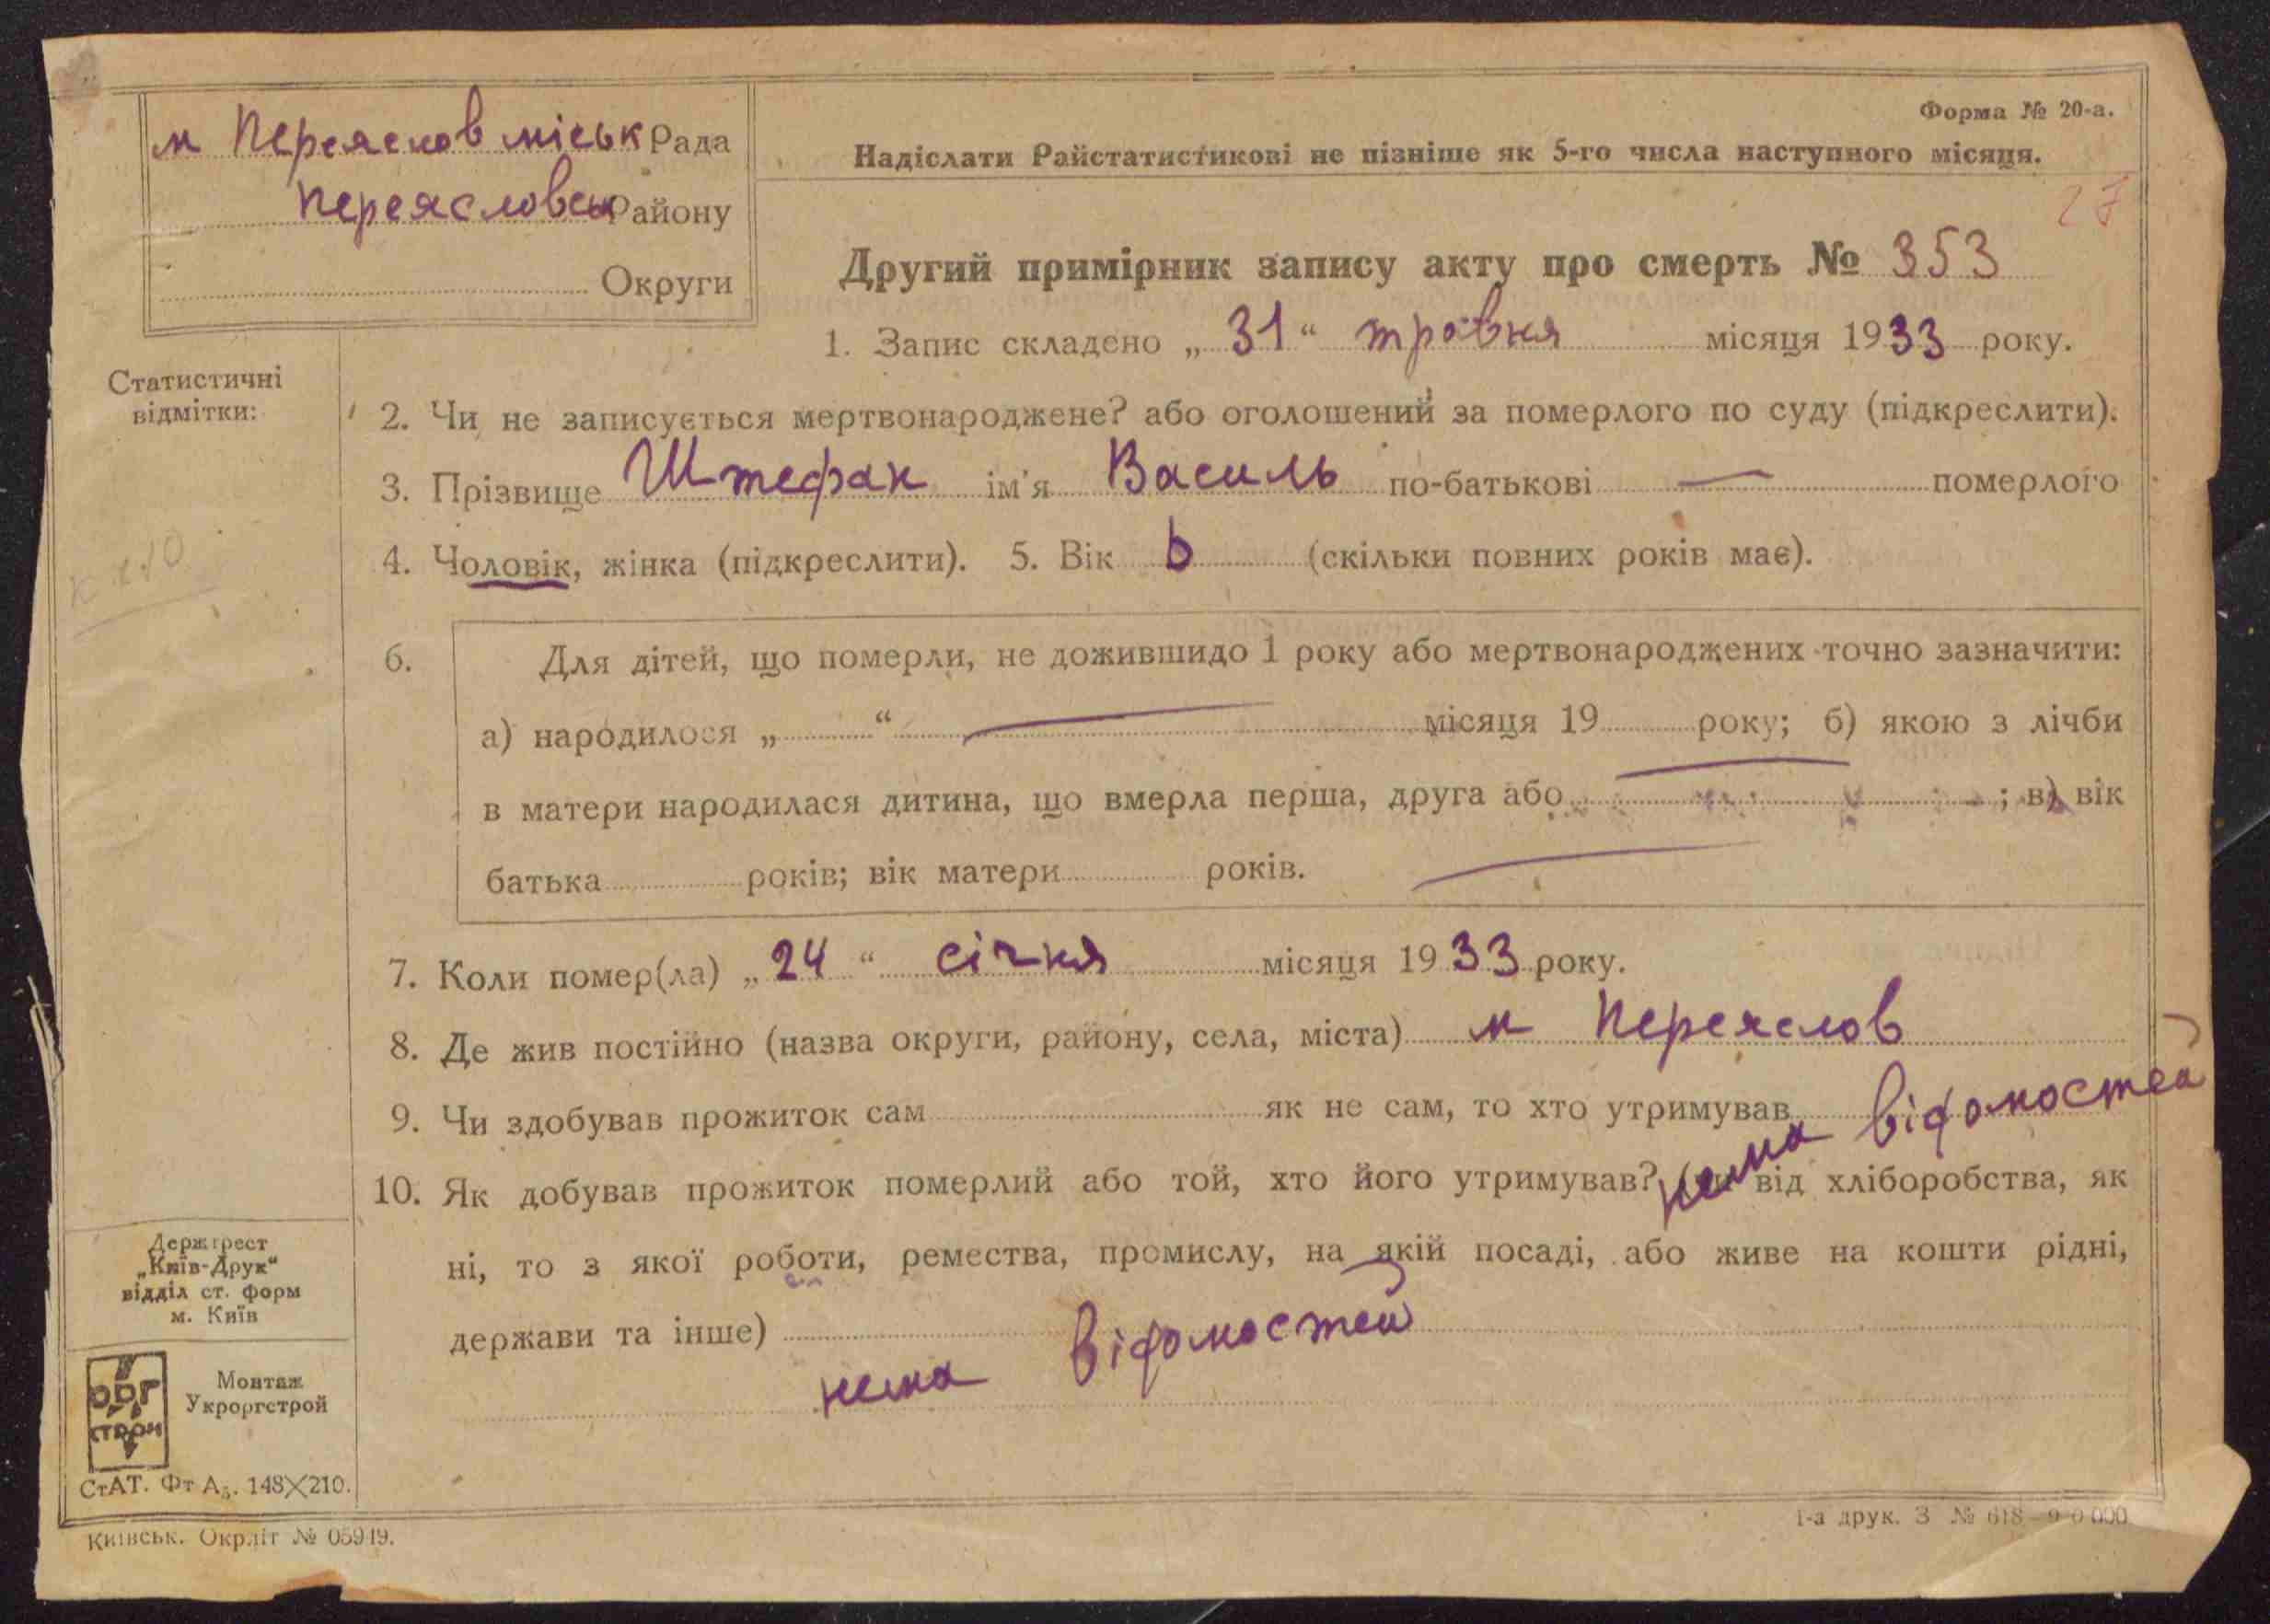 м Переяслов міськ Рада
Переясловськ Району
Округи
Форма № 20-а.
Надіслати Райстатистикові не пізніше як 5-го числа наступного місяця.
27
Другий примірник запису акту про смерть № 353
1. Запис складено „ 31 “ травня місяця 1933 року.
Статистичні
відмітки:
2. Чи не записується мертвонароджене? або оголошений за померлого по суду (підкреслити).
3. Прізвище Штефан ім'я Василь по-батькові — померлого
4. Чоловік, жінка (підкреслити). 5. Вік 6 (скільки повних років має).
6. Для дітей, що померли, не дожившидо 1 року або мертвонароджених точно зазначити:
а) народилося „ “ — місяця 19 року; б) якою з лічби
в матери народилася дитина, що вмерла перша, друга або — ; в) вік
батька років; вік матери років. —
7. Коли помер(ла) „ 24 “ січня місяця 1933 року.
8. Де жив постійно (назва округи, району, села, міста) м Переяслов
9. Чи здобував прожиток сам як не сам, то хто утримував нема відомостей
10. Як добував прожиток померлий або той, хто його утримував? (чи від хліборобства, як
ні, то з якої роботи, ремества, промислу, на якій посаді, або живе на кошти рідні,
держави та інше)
нема відомостей
Держтрест
„Київ-Друк“
відділ ст. форм
м. Київ
ОРГ
СТРОЙ
Монтаж
Укроргстрой
СтАТ. Фт А5. 148×210.
Київськ. Окрліт № 05949.
1-а друк. З № 618